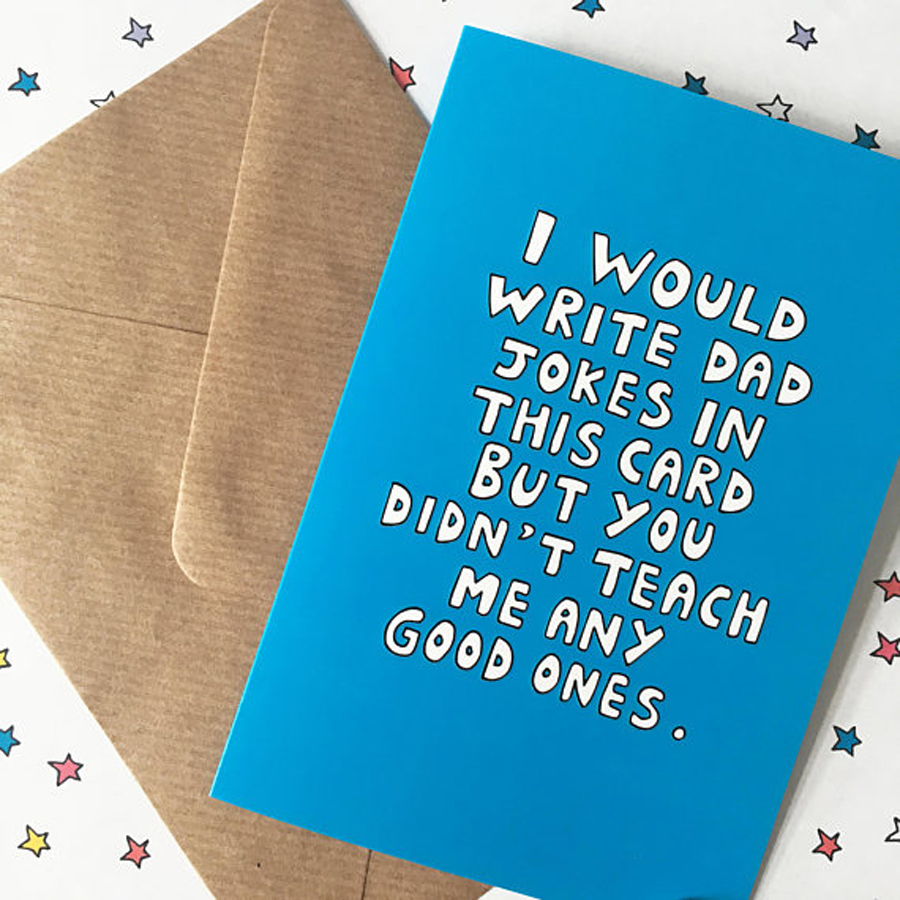 I WOULD
WRITE DAD
JOKES IN
THIS CARD
BUT YOU
DIDN'T TEACH
ME ANY
GOOD ONES.